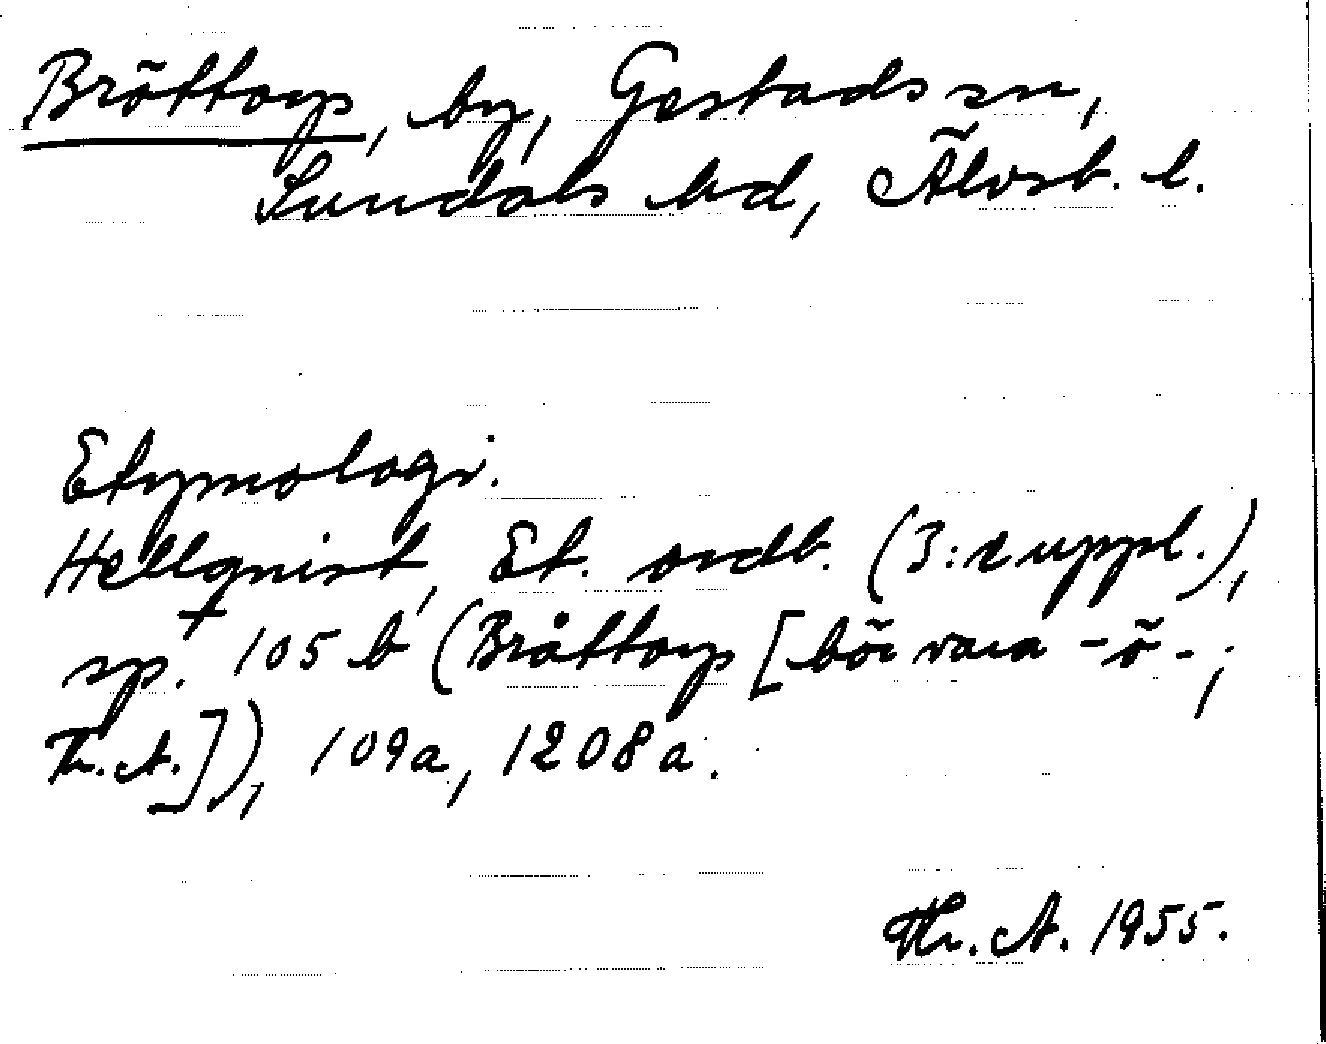 Bröttorp, by, Gestads sn,
Sundals hd, Älvsb. l.
Etymologi.
Hellquist, Et. ordb. (3: suppl.),
sp. 105 b (Bråttorp [bör vara -ö-;
Th. A.]), 109a, 1208a.
Th. A. 1955.